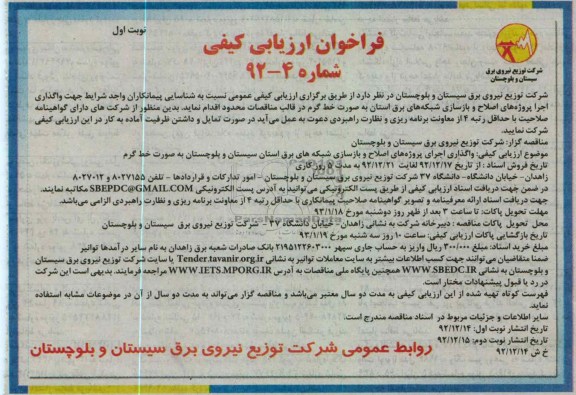 نوبت اول
فراخوان ارزیابی کیفی
شماره ۴-۹۲
شرکت توزیع نیروی برق
سیستان و بلوچستان
شرکت توزیع نیروی برق سیستان و بلوچستان در نظر دارد از طریق برگزاری ارزیابی کیفی عمومی نسبت به شناسایی پیمانکاران واجد شرایط جهت واگذاری
اجرا پروژه‌های اصلاح و بازسازی شبکه‌های برق استان به صورت خط گرم در قالب مناقصات محدود اقدام نماید. بدین منظور از شرکت های دارای گواهینامه
صلاحیت با حداقل رتبه ۴ از معاونت برنامه ریزی و نظارت راهبردی دعوت به عمل می‌آید در صورت تمایل و داشتن ظرفیت آماده به کار در این ارزیابی کیفی
شرکت نمایید.
مناقصه گزار: شرکت توزیع نیروی برق سیستان و بلوچستان
موضوع ارزیابی کیفی: واگذاری اجرای پروژه‌های اصلاح و بازسازی شبکه های برق استان سیستان و بلوچستان به صورت خط گرم
تاریخ فروش اسناد : از تاریخ ۹۲/۱۲/۱۷ لغایت ۹۲/۱۲/۲۱ به مدت ۵ روز کاری
زاهدان - خیابان دانشگاه- دانشگاه ۳۷ شرکت توزیع نیروی برق سیستان و بلوچستان - امور تدارکات و قراردادها - تلفن ۸۰۲۷۱۵۵ و ۸۰۲۷۰۱۲
در ضمن جهت دریافت اسناد ارزیابی کیفی از طریق پست الکترونیکی می‌توانید به آدرس پست الکترونیکی SBEPDC@GMAIL.COM مکاتبه نمایند.
جهت دریافت اسناد ارائه معرفینامه و تصویر گواهینامه صلاحیت پیمانکاری با حداقل رتبه ۴ از معاونت برنامه ریزی و نظارت راهبردی الزامی می‌باشد.
مهلت تحویل پاکات: تا ساعت ۳ بعد از ظهر روز دوشنبه مورخ ۹۳/۱/۱۸
محل تحویل پاکات مناقصه : دبیرخانه شرکت به نشانی زاهدان- خیابان دانشگاه ۳۷ - شرکت توزیع نیروی برق سیستان و بلوچستان
تاریخ بازگشایی پاکات ارزیابی کیفی: ساعت ۱۰ روز سه شنبه مورخ ۹۳/۱/۱۹
مبلغ خرید اسناد: مبلغ ۳۰۰/۰۰۰ ریال واریز به حساب جاری سپهر ۲۱۹۵۱۲۲۶۰۳۰۰۰ بانک صادرات شعبه برق زاهدان به نام سایر درآمدها توانیر
ضمنا متقاضیان می توانند جهت کسب اطلاعات بیشتر به سایت معاملات توانیر به نشانی Tender.tavanir.org.ir یا سایت شرکت توزیع نیروی برق سیستان
و بلوچستان به نشانی WWW.SBEDC.IR همچنین پایگاه ملی مناقصات به آدرس WWW.IETS.MPORG.IR مراجعه فرمایند. بدیهی است این شرکت
در رد یا قبول پیشنهادات مختار است.
فهرست کوتاه تهیه شده از این ارزیابی کیفی به مدت دو سال معتبر می‌باشد و مناقصه گزار می‌تواند به مدت دو سال از آن در موضوعات مشابه استفاده
نماید.
سایر اطلاعات و جزئیات مربوط در اسناد مناقصه مندرج است:
تاریخ انتشار نوبت اول: ۹۲/۱۲/۱۴
تاریخ انتشار نوبت دوم: ۹۲/۱۲/۱۵
خ ش ۹۲/۱۲/۱۴
روابط عمومی شرکت توزیع نیروی برق سیستان و بلوچستان